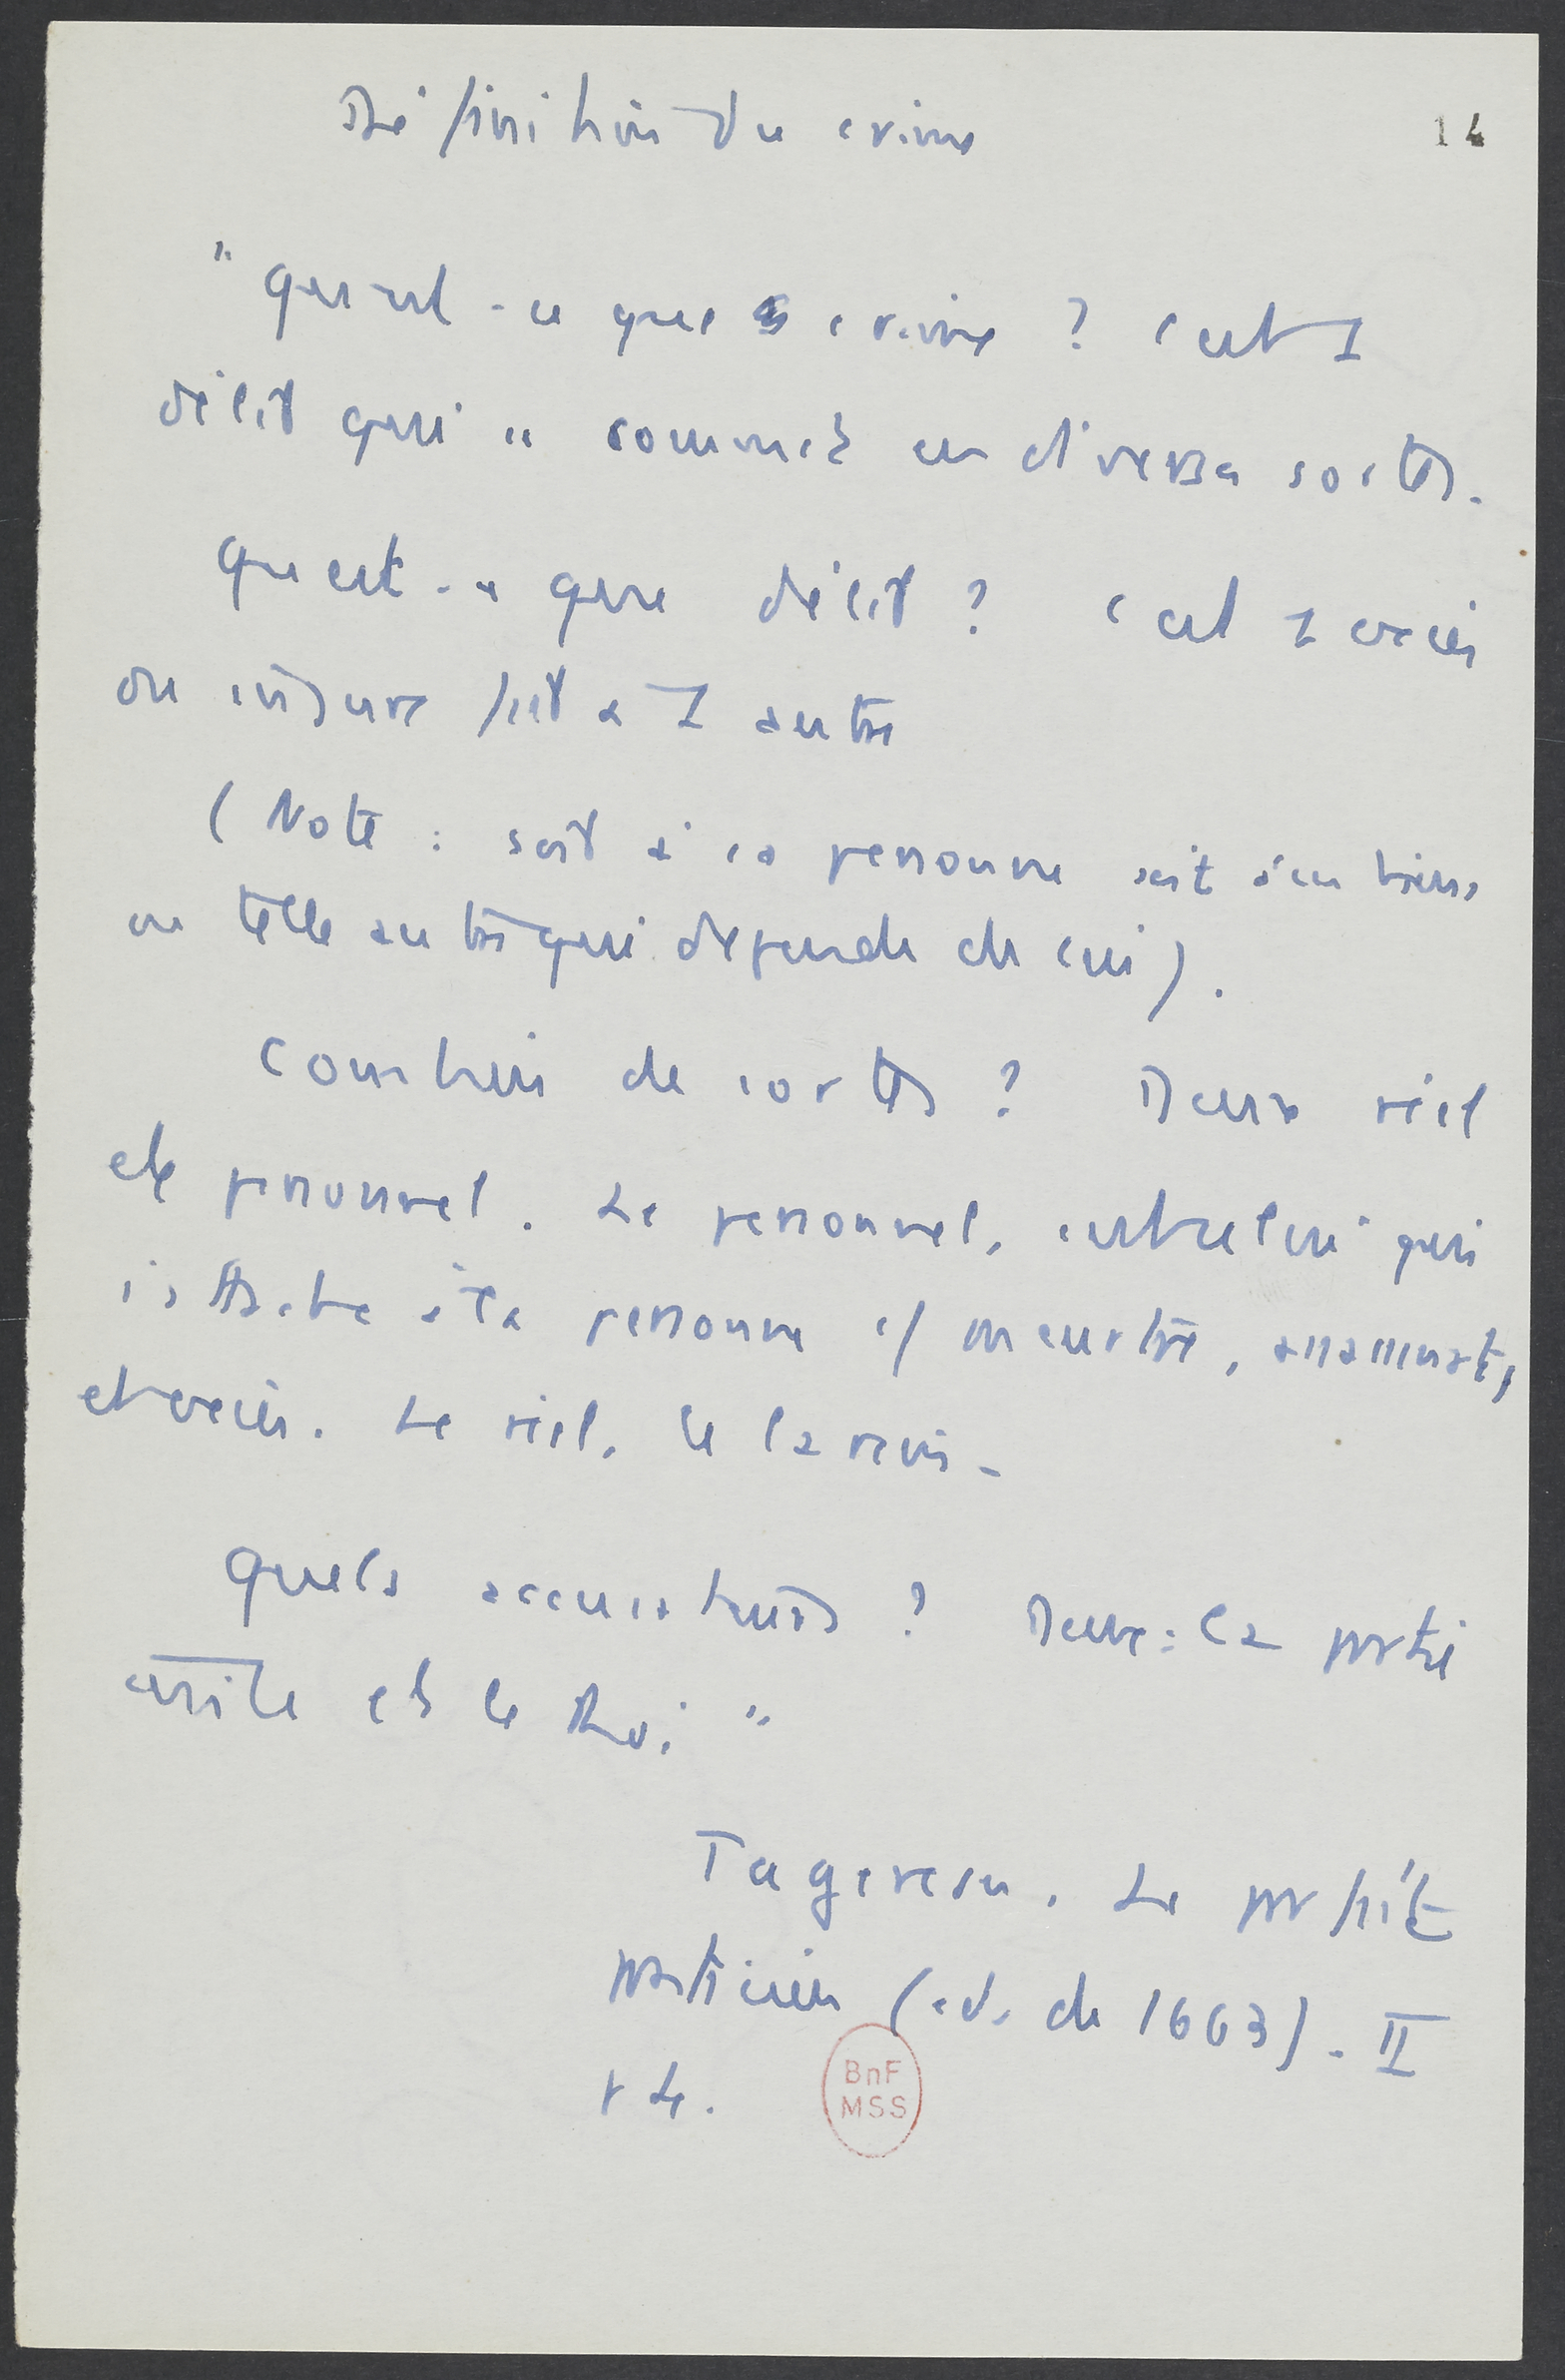 Définition du crime
14
"Qu'est-ce que crime ? C'est 1
délit qui se commet en diverses sortes.
Qu'est-ce que délit ? C'est 1 excès
ou injure fait à 1 autre
(Note : soit à sa personne soit à ses biens
ou telle autre qui dépende de lui).
Combien de sortes ? Deux réel
et personnel. Le personnel, est celui qui
s'attache à la personne cf meurtre, assassinat,
et excès. Le réel, le larcin.
Quels accusateurs ? Deux : la partie
civile et le Roi"
Tagereau. Le parfait
praticien (éd. de 1663). II
p 4.
BnF
MSS